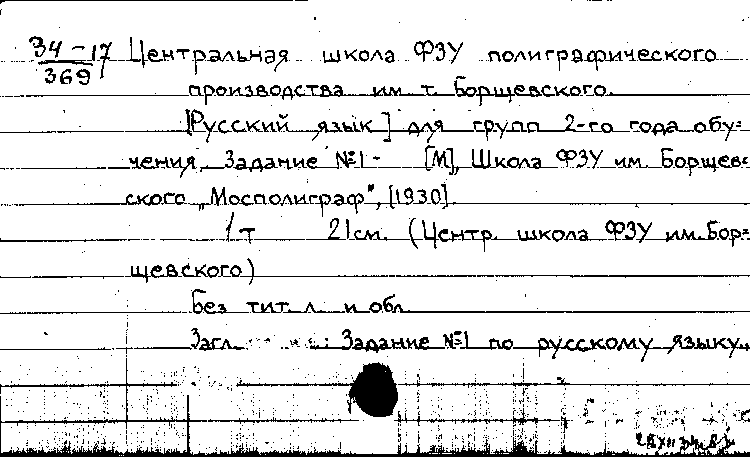 34-17
369
Центральная школа ФЗУ полиграфического
производства им. т. Борщевского.
[Русский язык] для групп 2-го года обу-
чения, Задание №1- [М], Школа ФЗУ им. Борщев-
ского „Мосполиграф", [1930].
1 т 21см. (Центр. школа ФЗУ им. Бор-
щевского)
Без тит. л. и обл.
Загл. : Задание №1 по русскому языку..